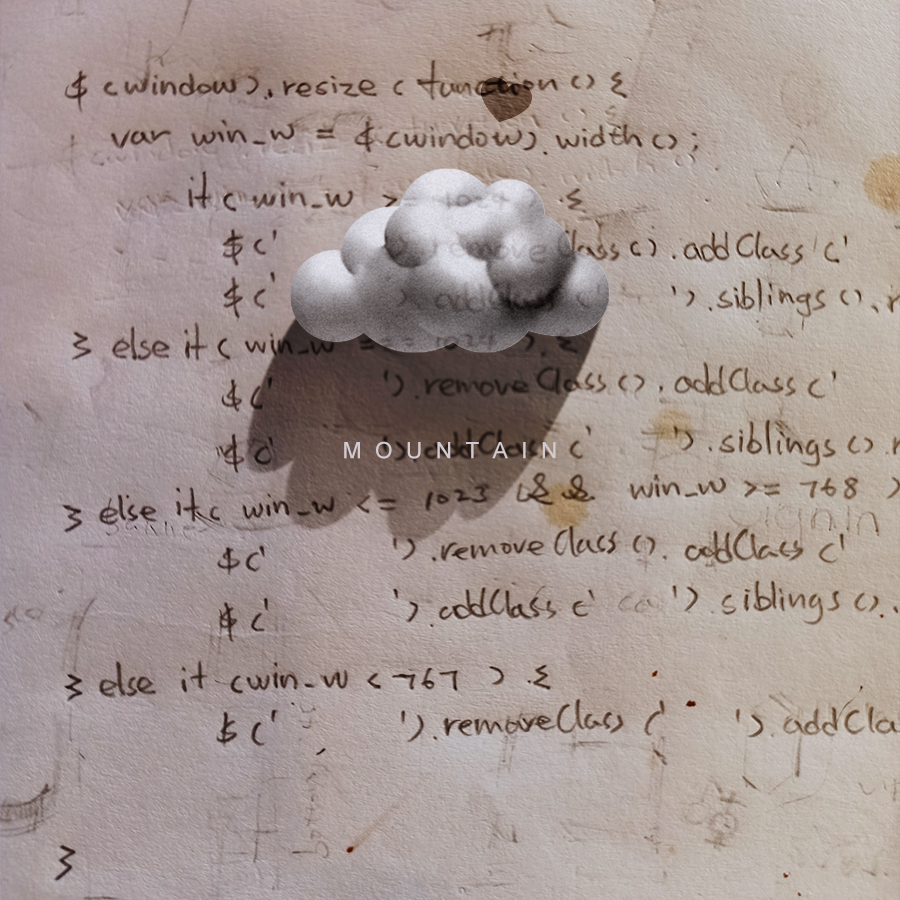 $ (window).resize ( function () {
var win_w = $(window).width();
if ( win_w >= 1024 {
$ (' removeClass().addClass ('
$ (' ').addClass (' ').siblings().r
} else if ( win_w == 1024 ) {
$ (' ').removeClass().addClass ('
$ (' ').addClass (' ').siblings().r
MOUNTAIN
} else if ( win_w <= 1023 && win_w >= 768 )
$ (' ').removeClass().addClass ('
$ (' ').addClass (' ').siblings().
} else if (win_w < 767 ) {
$ (' ').removeClass (' ').addCla
}